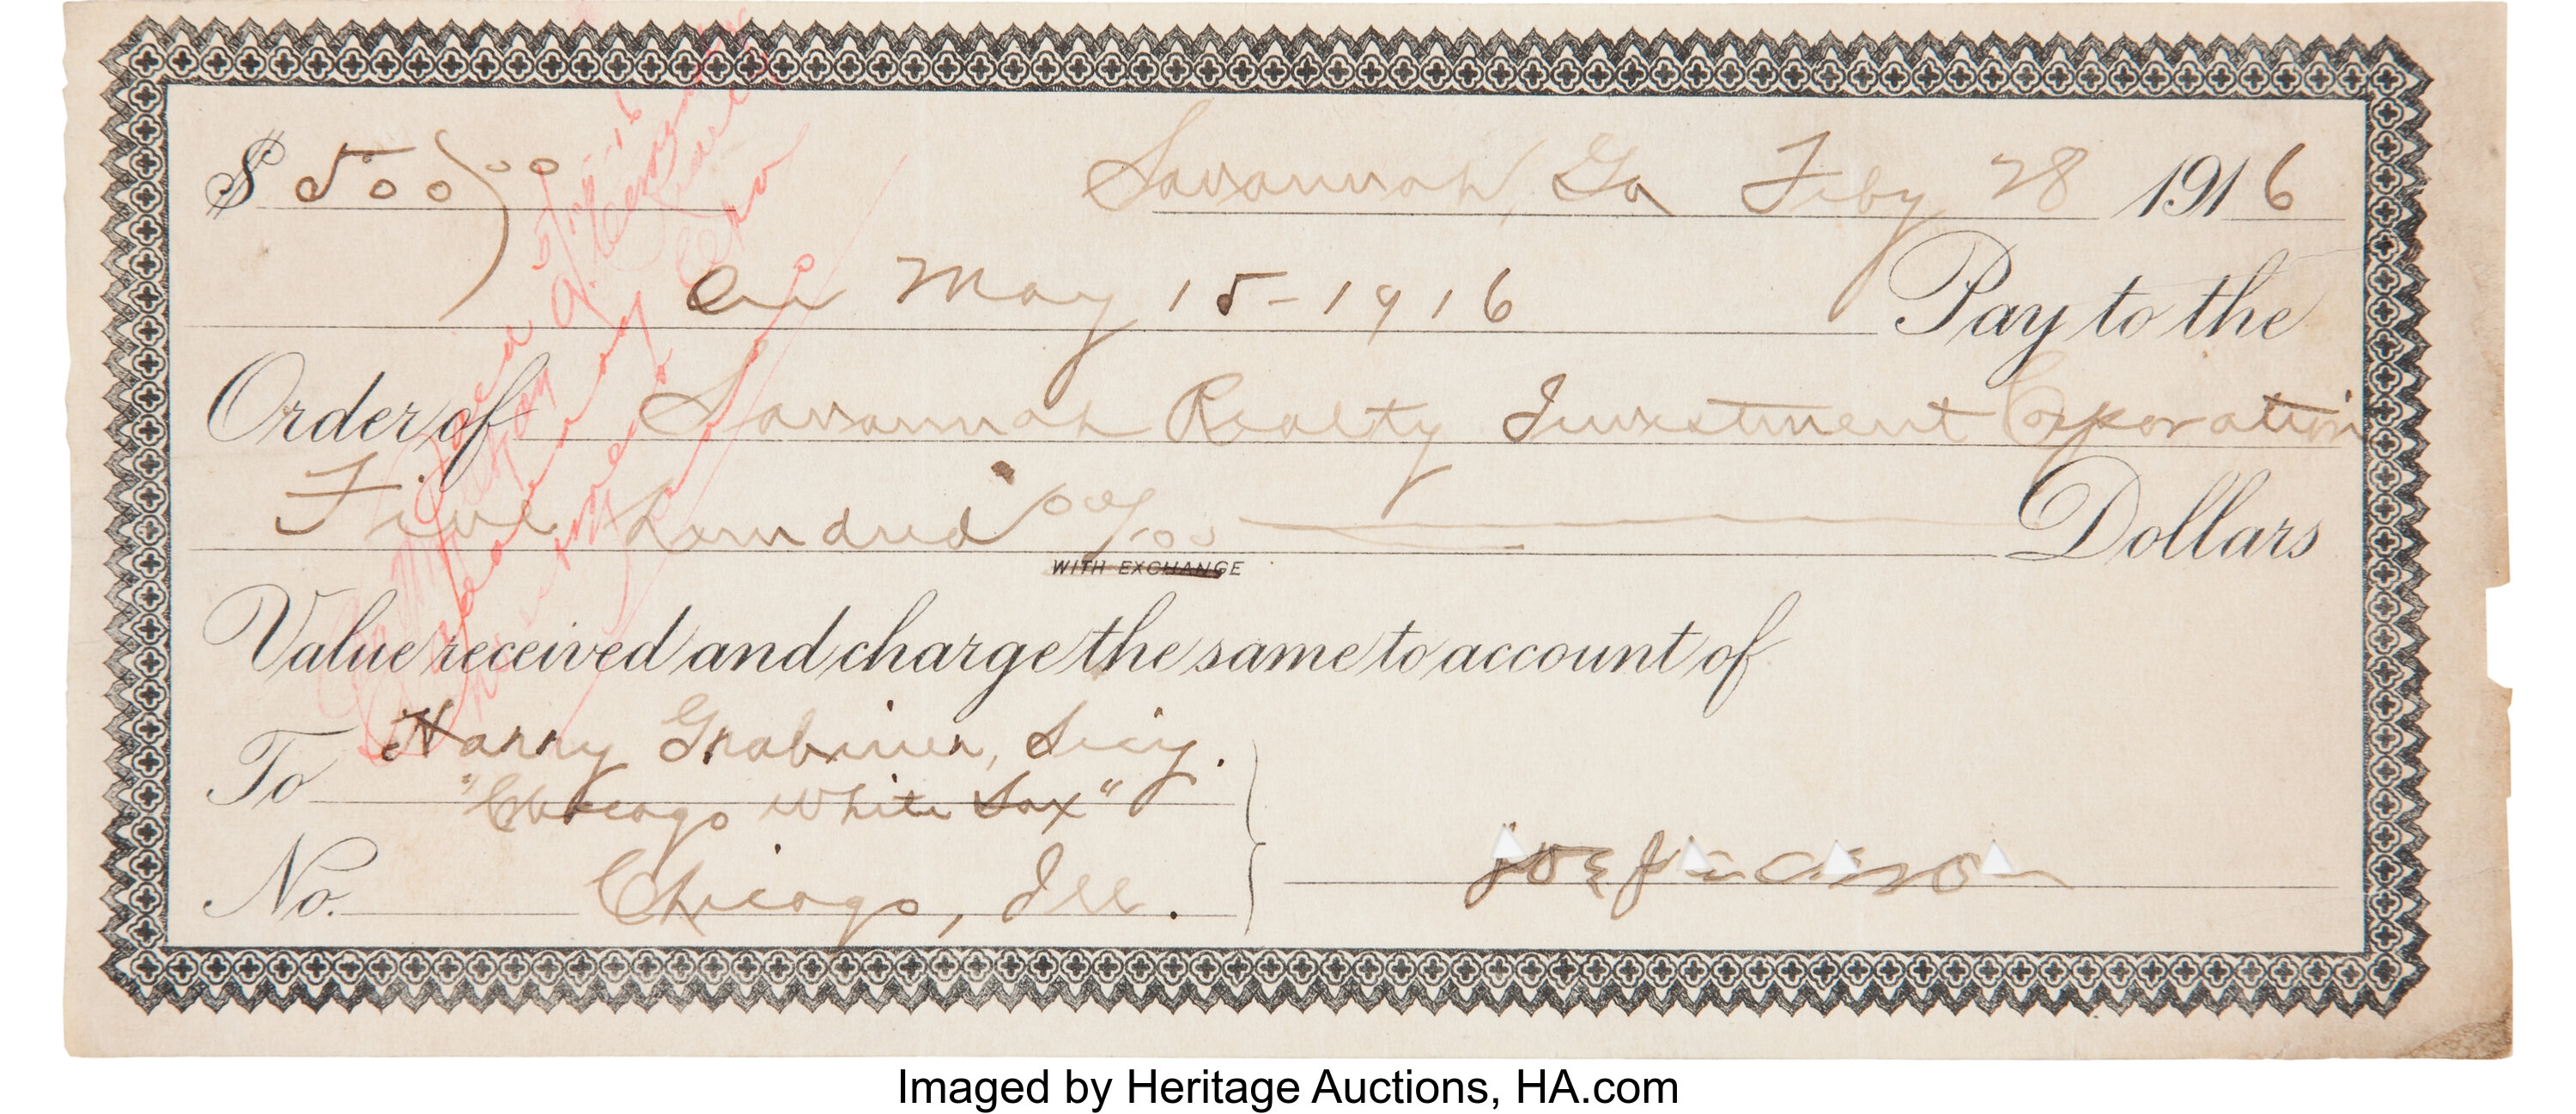 $ 500 00 Savannah, Ga Feby 28 1916
On May 15-1916 Pay to the
Order of Savannah Realty Investment Corporation
Five hundred 00/100 Dollars
WITH EXCHANGE
Value received and charge the same to account of
To Harry Grabiner, Secy.
"Chicago White Sox"
No. Chicago, Ill.
Joe Jackson
Imaged by Heritage Auctions, HA.com